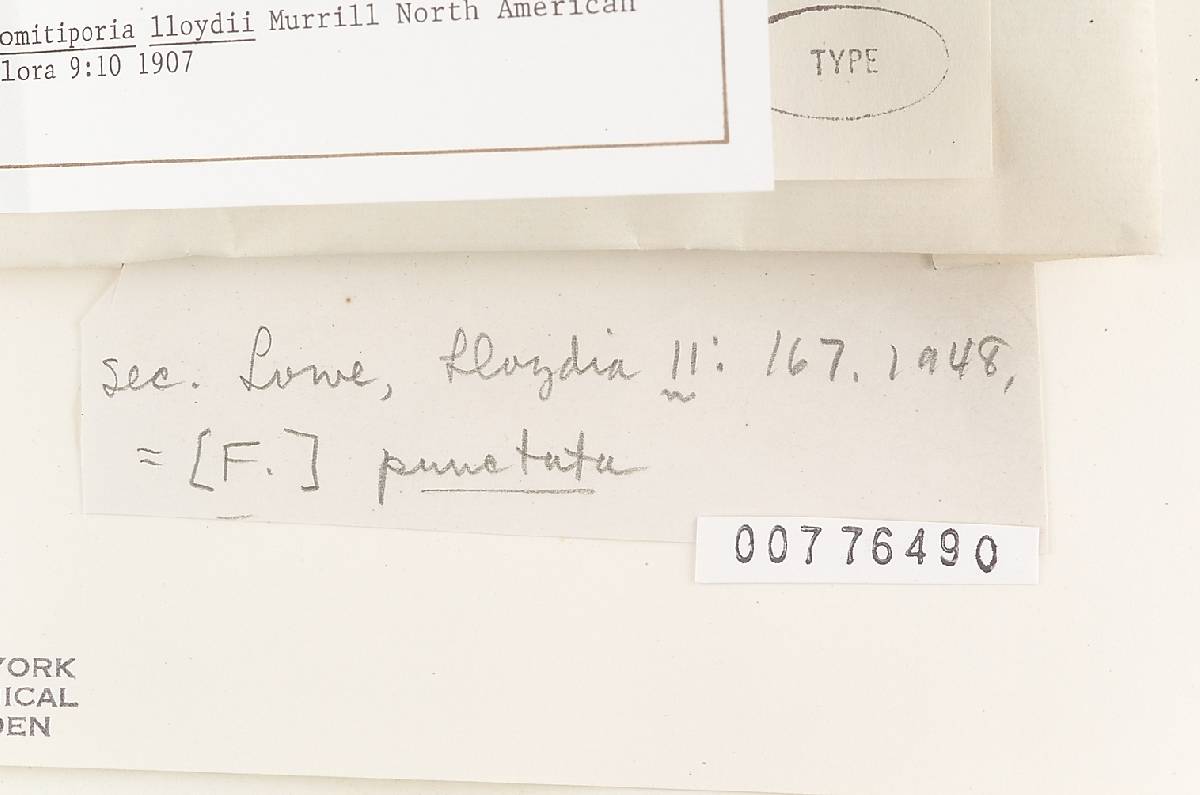 omitiporia lloydii Murrill North American
lora 9:10 1907
TYPE
sec. Lowe, Lloydia 11: 167. 1948,
= [F.] punctata
00776490
YORK
ICAL
DEN